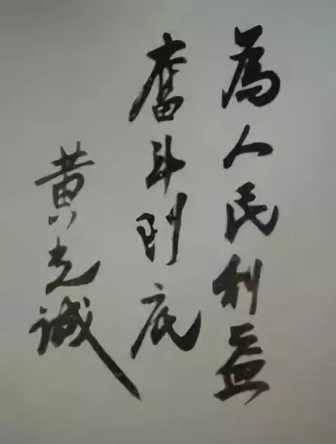 為人民利益
奮斗到底
黄克誠